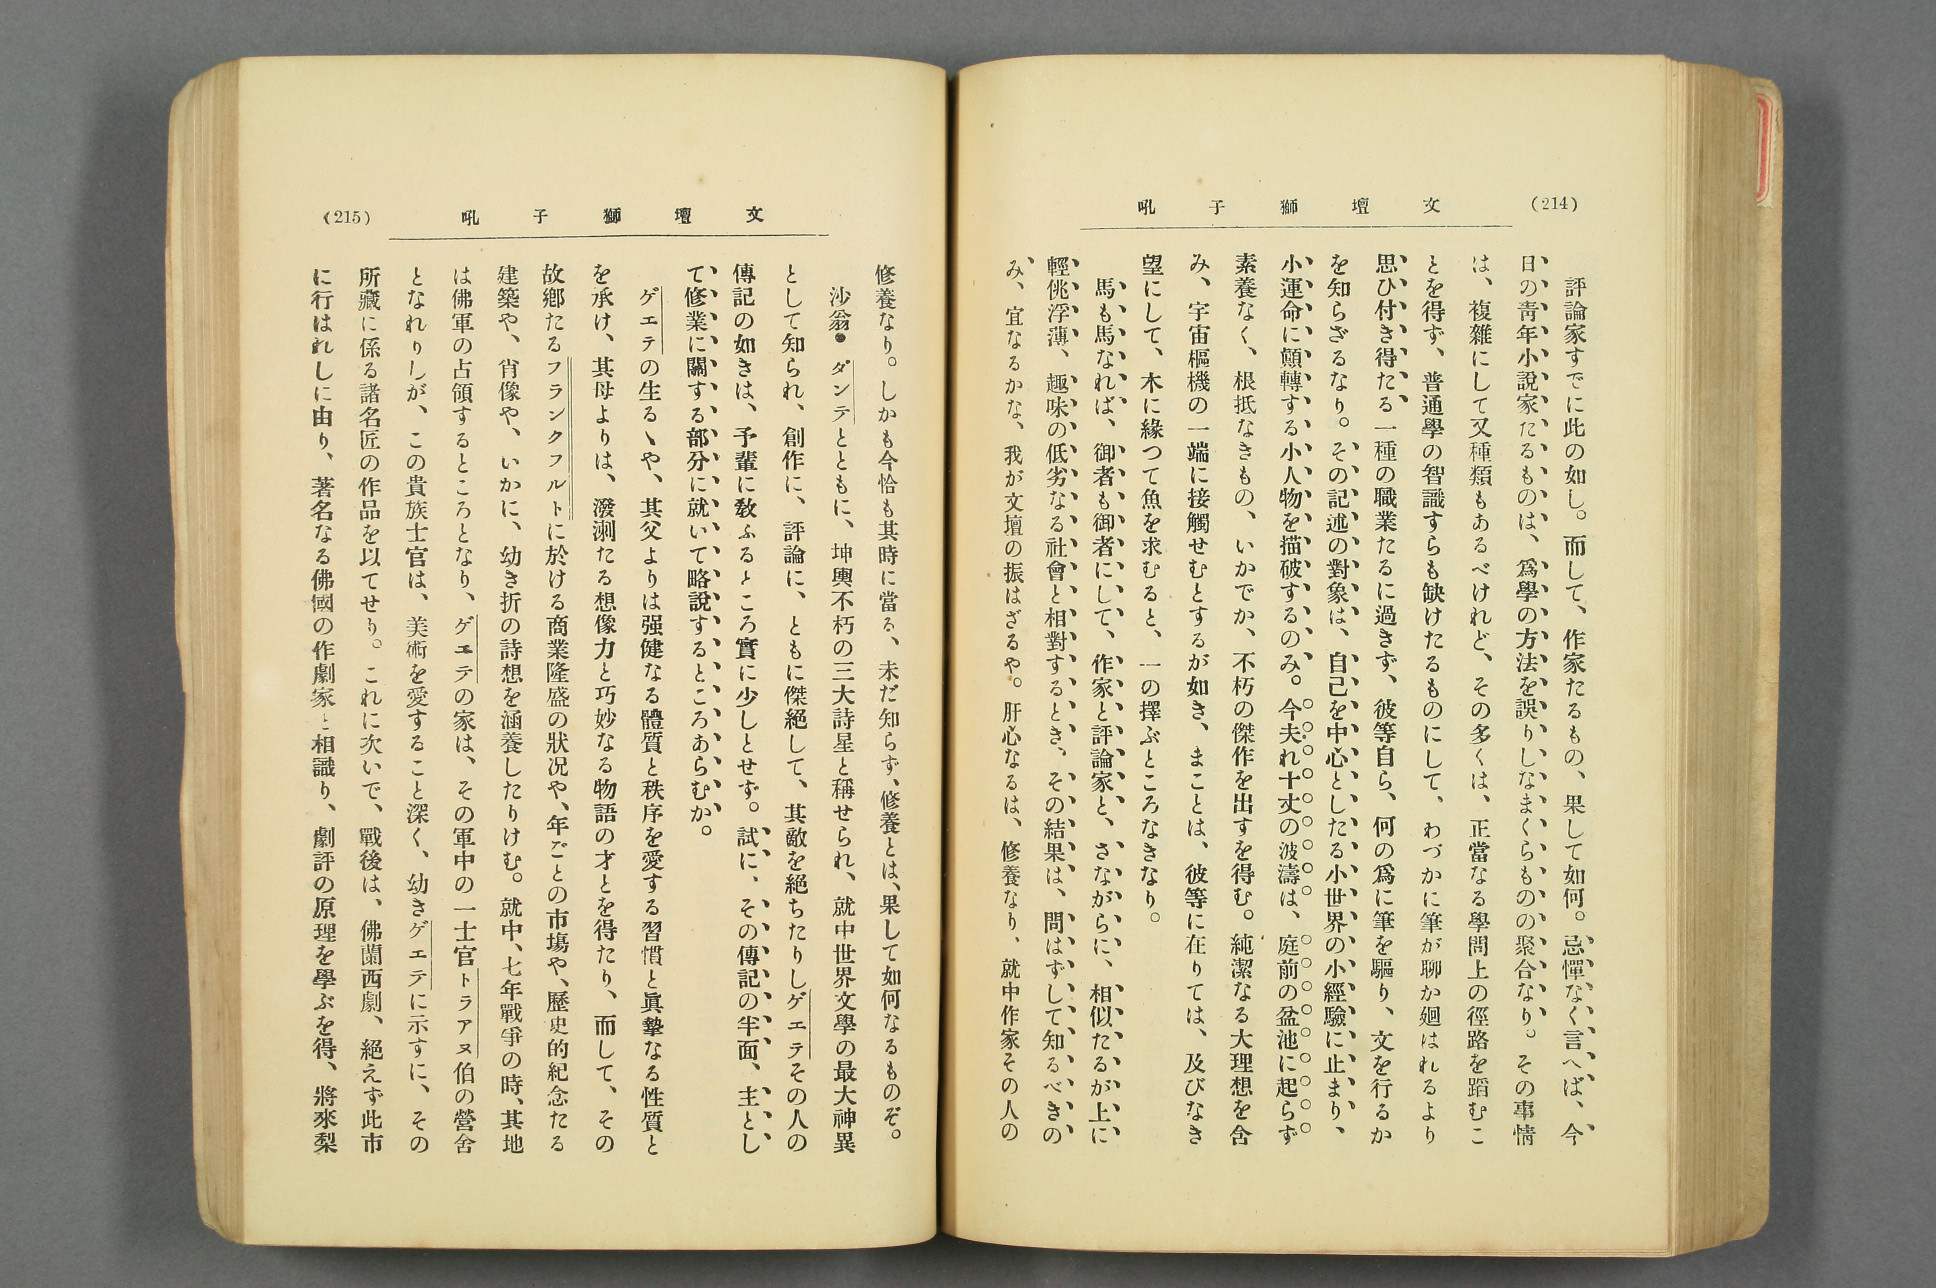 (214)
文壇獅子吼
評論家すでに此の如し。而して、作家たるもの、果して如何。忌憚なく言へば、今
日の靑年小說家たるものは、爲學の方法を誤りしなまくらものの聚合なり。その事情
は、複雜にして又種類もあるべけれど、その多くは、正當なる學問上の徑路を蹈むこ
とを得ず、普通學の智識すらも缺けたるものにして、わづかに筆が聊か廻はれるより
思ひ付き得たる一種の職業たるに過きず、彼等自ら、何の爲に筆を驅り、文を行るか
を知らざるなり。その記述の對象は、自己を中心としたる小世界の小經驗に止まり、
小運命に顚轉する小人物を描破するのみ。今夫れ十丈の波濤は、庭前の盆池に起らず
素養なく、根抵なきもの、いかでか、不朽の傑作を出すを得む。純潔なる大理想を含
み、宇宙樞機の一端に接觸せむとするが如き、まことは、彼等に在りては、及びなき
望にして、木に緣つて魚を求むると、一の擇ぶところなきなり。
馬も馬なれば、御者も御者にして、作家と評論家と、さながらに、相似たるが上に
輕佻浮薄、趣味の低劣なる社會と相對するとき、その結果は、問はずして知るべきの
み、宜なるかな、我が文壇の振はざるや。肝心なるは、修養なり、就中作家その人の
(215)
文壇獅子吼
修養なり。しかも今恰も其時に當る、未だ知らず、修養とは、果して如何なるものぞ。
沙翁・ダンテとともに、坤輿不朽の三大詩星と稱せられ、就中世界文學の最大神異
として知られ、創作に、評論に、ともに傑絕して、其敵を絕ちたりしゲエテその人の
傳記の如きは、予輩に敎ふるところ實に少しとせず。試に、その傳記の半面、主とし
て修業に關する部分に就いて略說するところあらむか。
ゲエテの生るゝや、其父よりは强健なる體質と秩序を愛する習慣と眞摯なる性質と
を承け、其母よりは、潑溂たる想像力と巧妙なる物語の才とを得たり、而して、その
故鄕たるフランクフルトに於ける商業隆盛の狀況や、年ごとの市場や、歷史的紀念たる
建築や、肖像や、いかに、幼き折の詩想を涵養したりけむ。就中、七年戰爭の時、其地
は佛軍の占領するところとなり、ゲエテの家は、その軍中の一士官トラアヌ伯の營舍
となれりしが、この貴族士官は、美術を愛すること深く、幼きゲエテに示すに、その
所藏に係る諸名匠の作品を以てせり。これに次いで、戰後は、佛蘭西劇、絕えず此市
に行はれしに由り、著名なる佛國の作劇家と相識り、劇評の原理を學ぶを得、將來梨